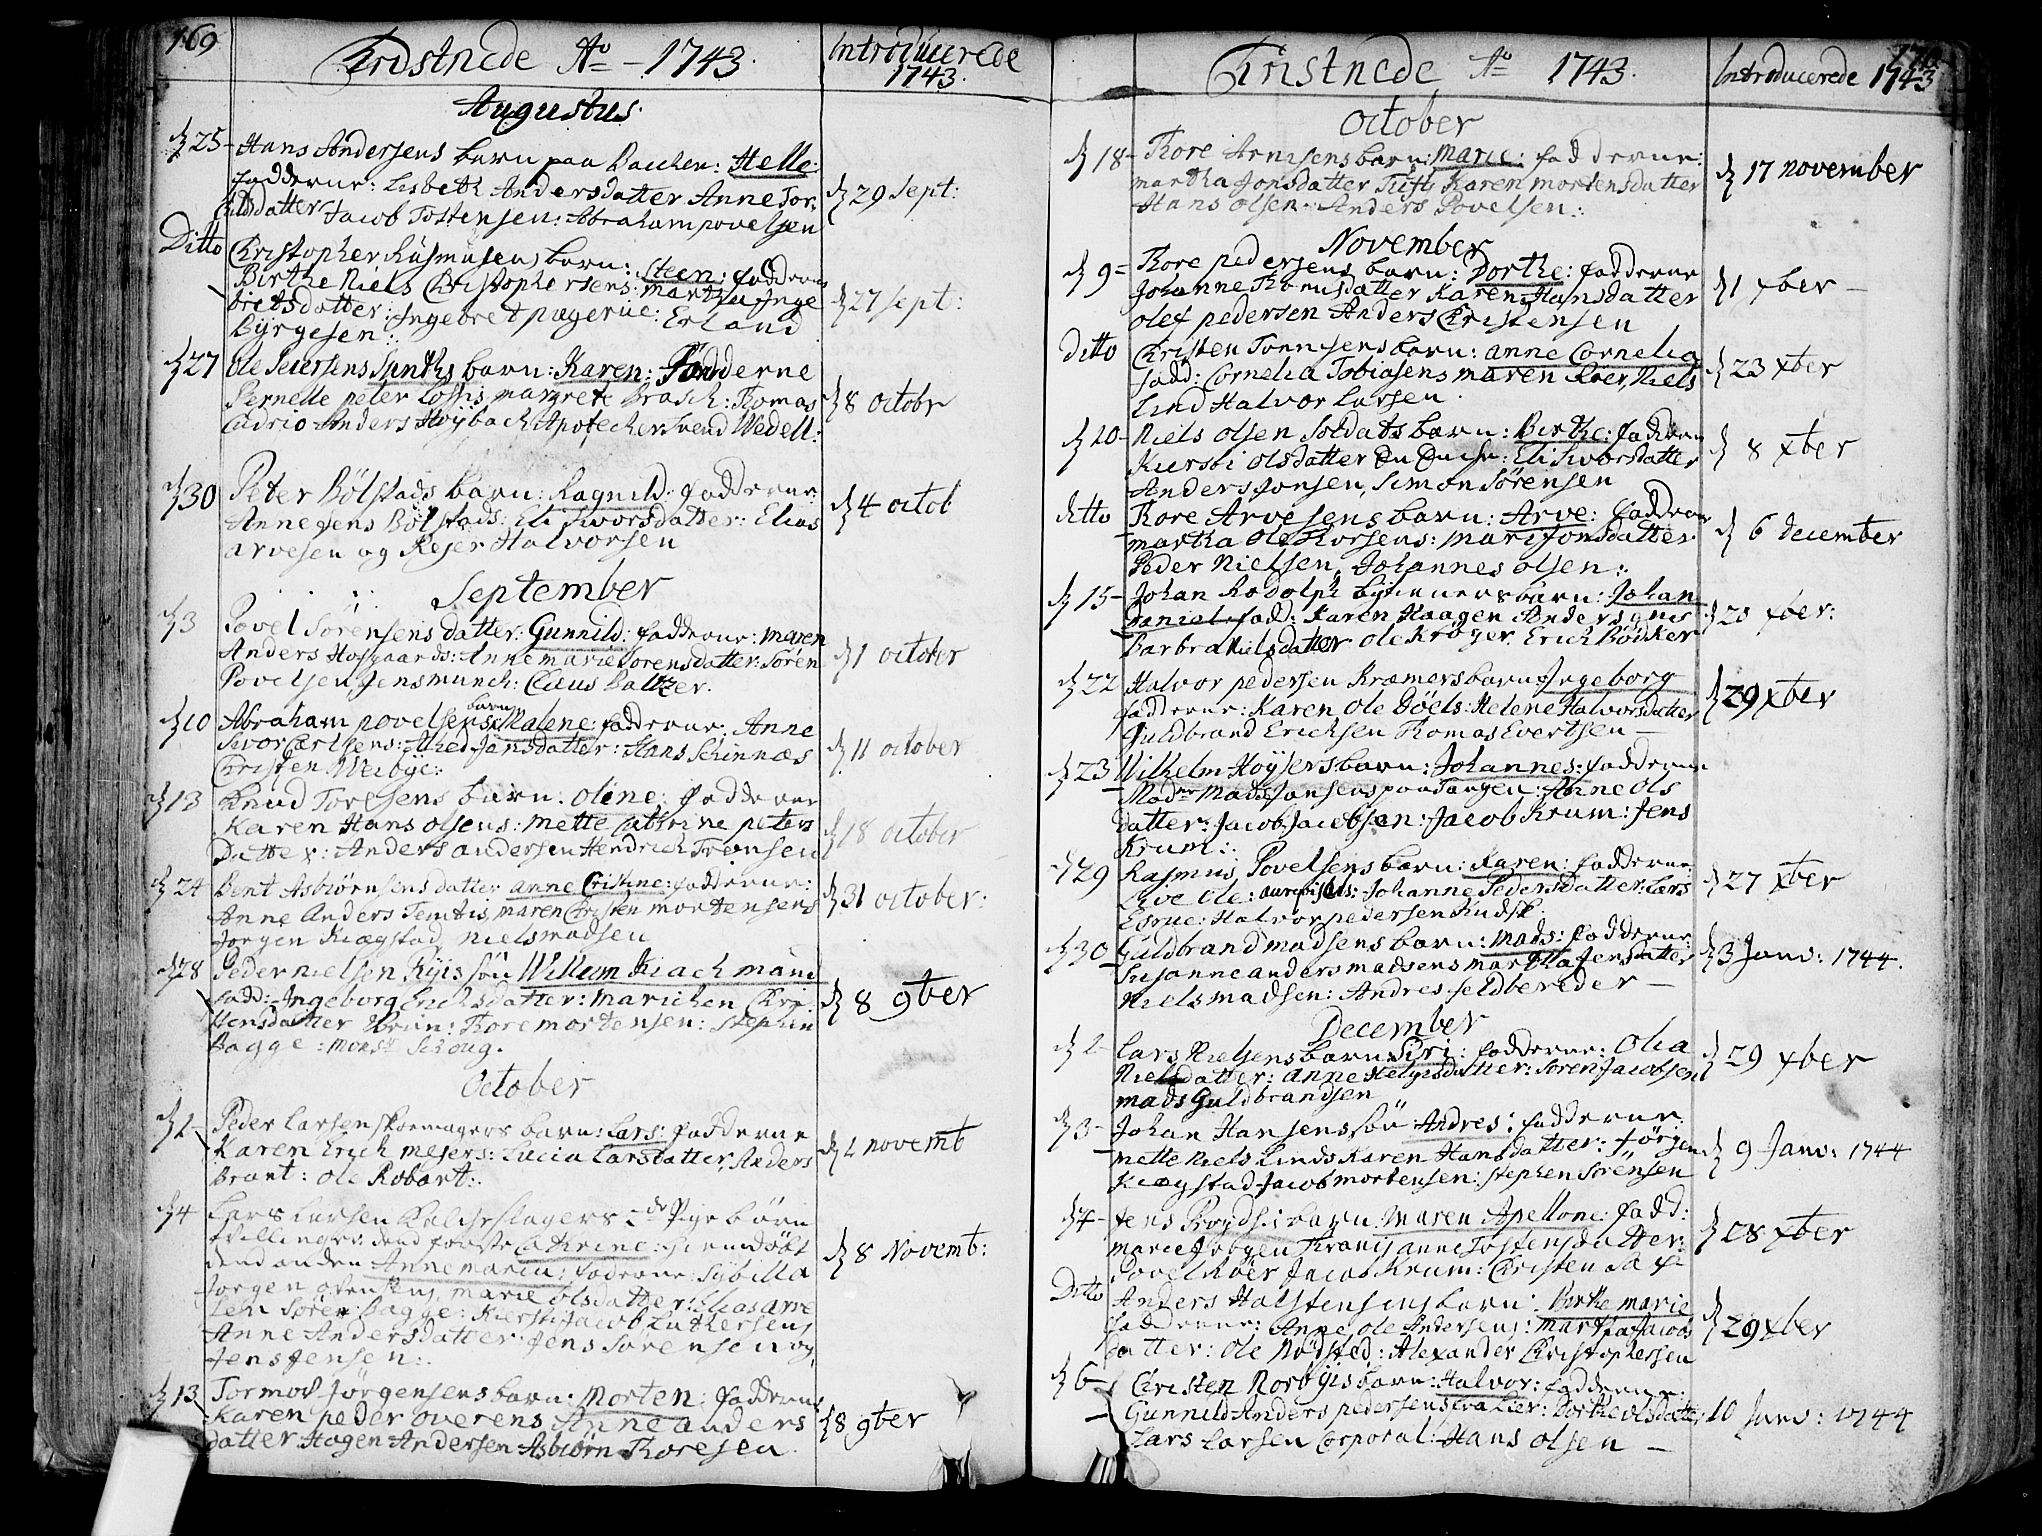 169
Cristnede Ao 1743.
Introducerede
1743.
Augustus.
d 25 - Hans Andersens barn paa Bacchen: Helle:
fadderne: Lisbeth Andersdatter Anne Tor
kildsdatter Jacob Tostensen: Abraham povelsen
d 29 Sept:
Ditto Christopher Rasmusens barn: Steen: fadderne
Birthe Niels Christophersens: Martha Inge
bretsdatter: Ingebret pægerne: Erland
Byrgesen:.
d 27 sept:
d 27 Ole Seiersens Sunths barn: Karen: Fadderne
Pernelle peter Loftis, margrete Brasch: Thomas
Cudrio Anders Höybach Apotecher Svend Wedell:
d 8 octobr
d 30 Peter Bölstads barn: Ragnild: fadderne:
Anne Jens Bölstads: Eli Ivorsdatter: Elias
arvesen og Rejer Halvorsen
d 4 octob
September
d 3 Povel Sörensens datter: Gunnild: fadderne: maren
Anders Hofgaards: Anne marie Sorensdatter: Sören
Povelsen, Jens munch: Claus Baltzer.
d 1 october
d 10 Abraham povelsens barn Malene: fadderne: Anne
Ivor Carlsens: Athed Jansdatter: Hans Schinnæs
Christen Weibye:.
d 11 october
d 13 Knud Toresens barn: oline: fadderne
Karen Hans olsens: Mette Cathrine peters
Datter: Anders andersen Hendrich Trönsen
d 18 october
d 24 Bent Asbiörnsens datter: anne Cristine: fadderne:
Anne Anders Temtis, maren Christen mortensens
Jorgen Kiægstad, Niels madsen
d 31 october:
d 28 Peder nielsen Ryis sön Willum Kiachman:
fadd: Ingeborg Erichsdatter: Marichen Chri
stensdatter Brun: Thore mortensen: Stephen
Bagge: Monsr Schoug.
d 8 9ber
October
d 2 Peder Larsen skoemagers barn: Lars: fadderne
Karen Erich mejers: Lucia Larsdatter, Anders
Brant: Ole Robart:.
d 2 novemb
d 4 Lars Larsen Belteslagers 2de Pige börn
tvillinger: dend förste Cathrine: hiemdöbt
dend anden Anne maria: fadderne: Sybilla
Jorgen ovensens, marie olsdatter: Elias arve
sen Sören Bagge: Kiersti Jacob Luthersens
Anne Andersdatter: Jens Sörensen og
Jens Jensen:.
d 8 Novemb:
d 13 Tormod Jörgensens barn: Morten: fadderne
Karen peder overens Anne anders
datter Hagen Andersen Asbiörn Thoresen.
d 8 9ber
170
Cristnede Ao 1743.
Introducerede 1743
October
d 18 - Thore Arnisens barn: Marie: fadderne:
martha Jonsdatter Tufts Karen mortensdatter
Hans olsen: Anders Povelsen:.
d 17 november
November
d 9 - Thore pedersens barn: Dorthe: fadderne
Johanne Thomisdatter Karen Hansdatter
olef pedersen Anders Christensen
d 1 xber -
ditto Christen Tonnisens barn: anne Cornelia
fadd: Cornelia Tobiasens maren Röer Niels
Lind Halvor Larsen.
d 23 xber
d 10 - Niels olsen Soldats barn: Birthe: fadderne
Kiersti olsdatter En Enche: Eli Ivorsdatter
Anders Jonsen, Simon Sörensen
d 8 xber
ditto Thore Arvesens barn: Arve: fadderne
martha Ole Thorsens: Mari Jonsdatter
Peder Nielsen, Johannes olsen:.
d 6 december
d 15 - Johan Rodolph Bytienens barn: Johan
Daniel: fadd: Karen Haagen Andersens
Barbra Nielsdatter Ole Kröyer Erich Bödker
d 20 xber:
d 22 Halvor pedersen Kræmers barn: Ingeborg
fadderne: Karen Ole Göels: Helene Halvorsdatter
Guldbrand Erichsen Thomas Evertsen -
d 29 xber
d 23 Wilhelm Höysers barn: Johannes: fadderne
Madme Mads Jansens paa Tangen: Anne Ols
datter: Jacob Jacobsen: Jacob Krum: Jens
Krum:.
d 29 Rasmus Povelsens barn: Karen: fadderne
Live Ole: Johanne Pedersdatter: Lars
Esrue: Halvor pedersen Kudsk
d 27 xber
d 30 Guldbrand madsens barn: Mads: fadderne:
Susanne anders madsens martha Jensdatter
Niels madsen: Andres feldbereder -
d 3 Janv: 1744.
December
d 2 - Lars Nielsens barn Siri: fadderne: Olea
Nielsdatter: anne Helgisdatter: Soren Jacobsen
mads Guldbrandsen
d 29 xber
d 3 - Johan Hansens sön Andres: fadderne:
mette Niels Linds Karen Hansdatter: Jörgen
Kiægstad Jacob mortensen: Stephen Sörensen
d 9 Janv: 1744
d 4 - Jens Prydts: barn: maren Apellone: fadd:
marie Jörgen Thranis anne Tostensdatter:
Povel Röer Jacob Krum: Christen Sax
d 28 xber
Ditto Anders Halstensens barn: Birthe marie
fadderne: Anne Ole Andersens: Martha Jacobs
datter: Ole Rödsted: Alexander Christophersen
d 29 xber
d 6 - Christen Norbyis barn: Halvor: fadderne:
Gunnild Anders pedersens Dorthe olsdatter
Lars Larsen Corporal: Hans olsen -
10 Janv: 1744